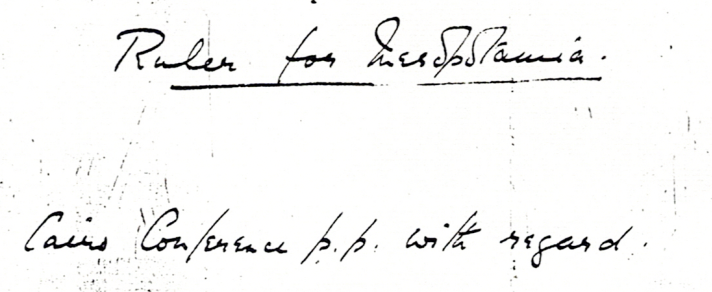 Ruler for Mesopotamia.
Cairo Conference p.p. with regard.